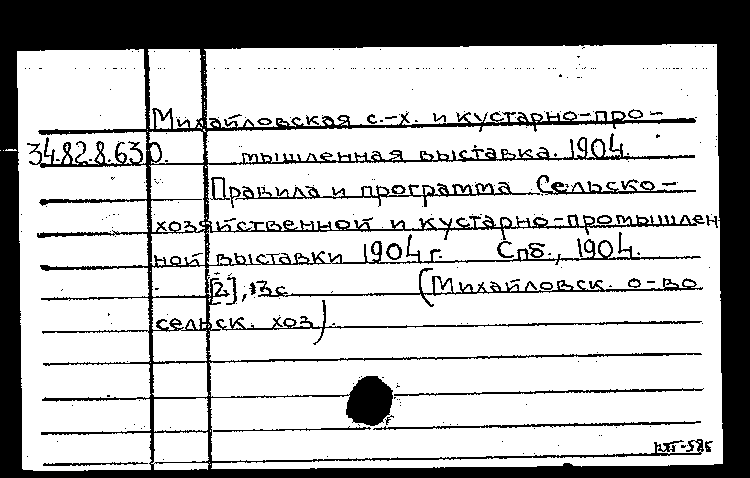 Михайловская с.-х. и кустарно-про-
34.82.8.630. мышленная выставка. 1904.
Правила и программа Сельско-
хозяйственной и кустарно-промышлен
ной выставки 1904 г. Спб., 1904.
[2], 13с. (Михайловск. о-во
сельск. хоз).